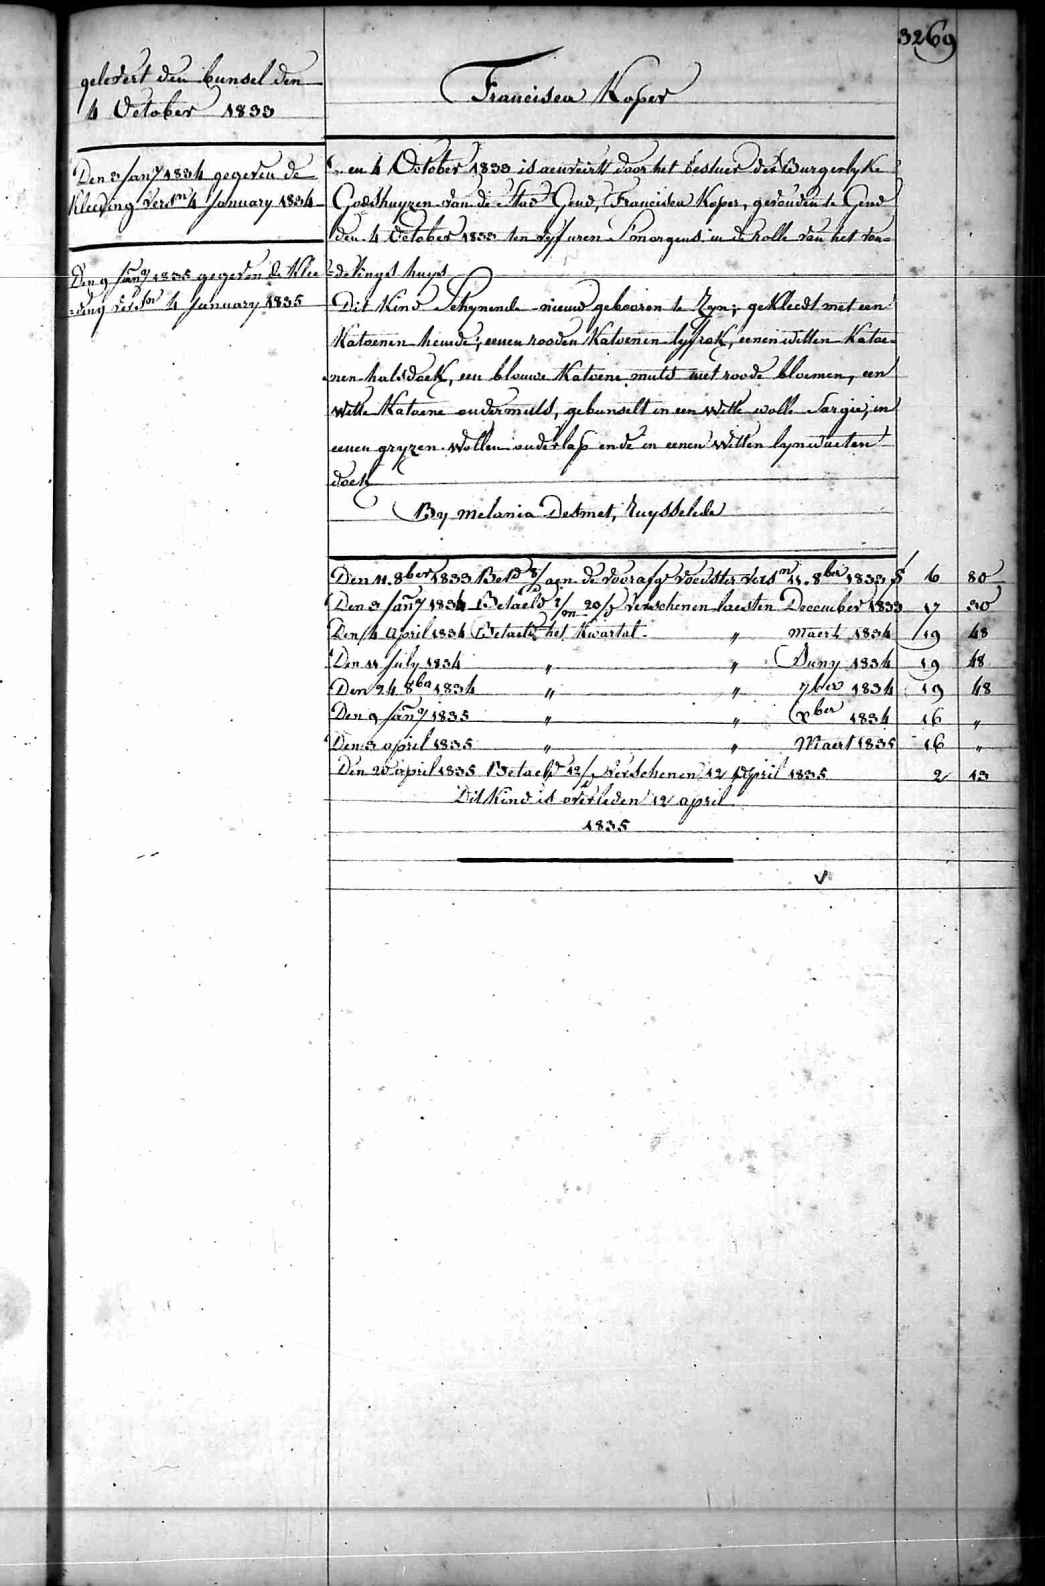 3269
gelevert den bunsel den
4 October 1833
Francisca Koper
Den 3 Jany 1834 gegeven de
Kleeding versn 4 January 1834
Den 9 Jany 1835 gegeven de Klee
=ding versn 4 January 1835
Den 4 October 1833 is aenveirt door het bestuer der Burgerlyke
Godshuyzen van de Stad Gend, Francisca Koper, gevonden te Gend
den 4 October 1833 ten vyf uren S'morgens in de rolle van het von=
=delings huys
Dit Kind Schynende nieuw gebooren te Zyn; gekleedt met een
Katoenen hemde; eenen rooden Katoenen lyfrok, eenen witten Katoe=
nen halsdoek, een blauwe Katoene muts met roode bloemen, een
witte Katoene ondermuts, gebunselt in een witte wolle Sargie, in
eenen gryzen wollen onderlap ende in eenen witten lynwaeten
doek
By melania Desmet, Ruysselede
Den 11. 8ber 1833 Betd aen de voorafge voedster versn 11. 8ber 1833 f 6 80
Den 3 Jany 1834 Betaeld 2/m 20/d verschenen laesten December 1833 17 30
Den 4 April 1834 Betaeld het Kwartal " maert 1834 19 48
Den 11 July 1834 " " Juny 1834 19 48
Den 24 8ber 1834 " " 7ber 1834 19 48
Den 9 Jany 1835 " " Xber 1834 16 "
Den 3 april 1835 " " Maert 1835 16 "
Den 20 april 1835 Betaeld 12/d verschenen 12 April 1835 2 13
Dit Kind is overleden 12 april
1835